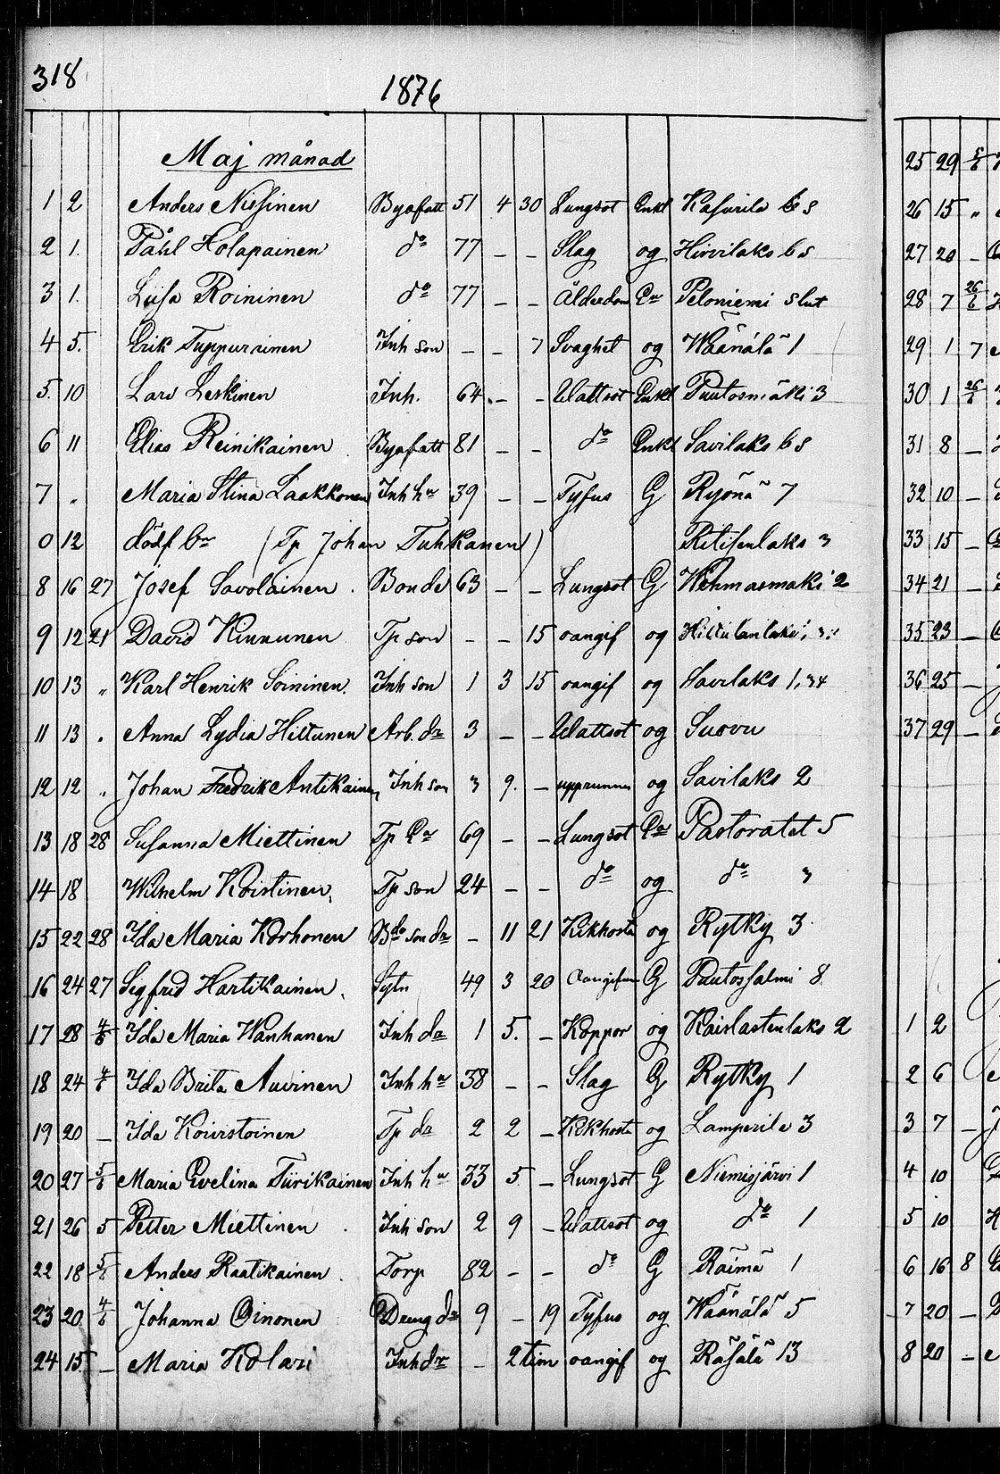 318
1876
Maj månad
1 2 Anders Nissinen Byafatt 51 4 30 Lungsot Enkl Kasurila 68
2 1. Påhl Holapainen do 77 - - Slag og Hirvilaks 68
3 1. Liisa Roininen do 77 - - Ålderdom Ea Peloniemi slut
4 5. Erik Tuppurainen Inh son - - 7 Svaghet og Wäänälä 1
5. 10 Lars Leskinen Inh. 64. - - Wattsot Enkl Puutosmäki 3
6 11 Elias Reinikainen Byafatt 81 - - do Enkl Savilaks 68
7 " Maria Stina Laakkonen Inh hu 39 - - Tyfus G Ryönä 7
0 12 dödf br (Tp Johan Tuhkanen) Ritisenlaks 3
8 16 27 Josef Savolainen. Bonde 63 - - Lungsot G Wehmasmäki 2
9 12 21 David Kinnunen Tp son - - 15 oangif og
10 13 " Karl Henrik Soininen. Inh son 1 3 15 oangif og Savilaks 1, 34
11 13 " Anna Lydia Hiltunen Arb. dr 3 - - Wattsot og Suovu
12 12 " Johan Fredrik Antikainen Inh son 3 9. - og Savilaks 2
13 18 28 Susanna Miettinen Tp Ea 69 - - Lungsot Ea Pastoratet 5
14 18 Wilhelm Koistinen, Tp son 24 - - do og do 3
15 22 28 Ida Maria Korhonen Bde son dr - 11 21 Kikhosta og Rytky 3
16 24 27 Sigfrid Hartikainen. Sytn 49 3 20 Oangifven G Puutossalmi 8
17 28 4/6 Ida Maria Wanhanen Inh dr 1 5. - Koppor og Kaislastenlaks 2
18 24 4/6 Ida Brita Auvinen Inh hu 38 - - Slag G Rytky 1
19 20 - Ida Koirstoinen Tp dr 2 2 - Kikhosta og Lamperila 3
20 27 5/6 Maria Evelina Tiirikainen Inh hu 33 5. - Lungsot G Niemisjärvi 1
21 26 5 Petter Miettinen. Inh son 2 9 - Wattsot og do 1
22 18 5/6 Anders Raatikainen. Torp 82 - - do G Räimä 1
23 20 4/6 Johanna Oinonen Dreng dr 9 - 19 Tyfus og Wäänälä 5
24 15 - Maria Kolari Inh dr - 2 tim oangif og Räsälä 13
25 29 5/6
26 15 "
27 20 -
28 7 26/6
29 1 7
30 1 26/6
31 8 -
32 10 -
33 15 -
34 21 -
35 23 -
36 25 -
37 29 -
1 2
2 6
3 7 -
4 10
5 10
6 16 8
7 20 -
8 20 -